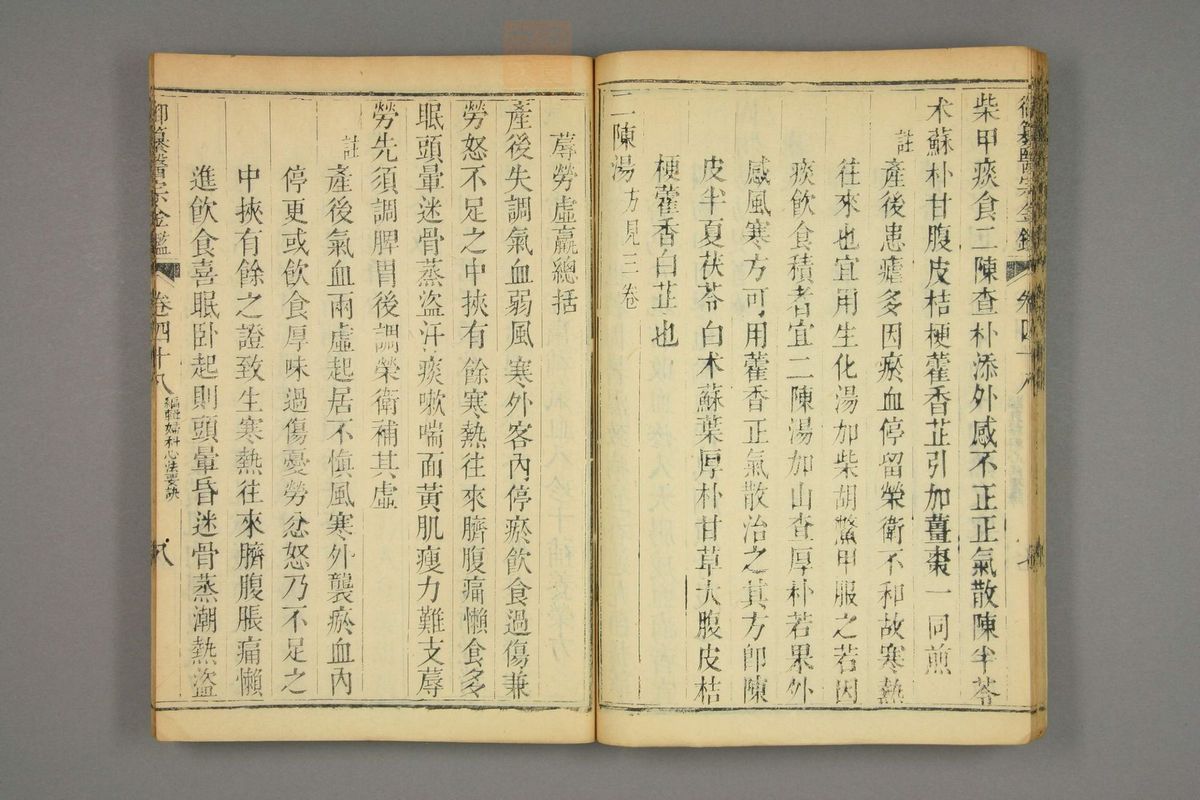 柴甲痰食二陳查朴添外感不正正氣散陳半苓
术蘇朴甘腹皮桔梗藿香芷引加薑棗一同煎
註
產後患瘧多因瘀血停留榮衛不和故寒熱
往來也宜用生化湯加柴胡鱉甲服之若因
痰飲食積者宜二陳湯加山查厚朴若果外
感風寒方可用藿香正氣散治之其方即陳
皮半夏茯苓白术蘇葉厚朴甘草大腹皮桔
梗藿香白芷也
二陳湯 方見三卷
蓐勞虛羸總括
產後失調氣血弱風寒外客內停瘀飲食過傷兼
勞怒不足之中挾有餘寒熱往來臍腹痛懶食多
眠頭暈迷骨蒸盜汗痰嗽喘面黃肌瘦力難支蓐
勞先須調脾胃後調榮衛補其虛
註
產後氣血兩虛起居不慎風寒外襲瘀血內
停更或飲食厚味過傷憂勞忿怒乃不足之
中挾有餘之證致生寒熱往來臍腹脹痛懶
進飲食喜眠卧起則頭暈昏迷骨蒸潮熱盜
御纂醫宗金鑑 卷四十八 編輯婦科心法要訣 八